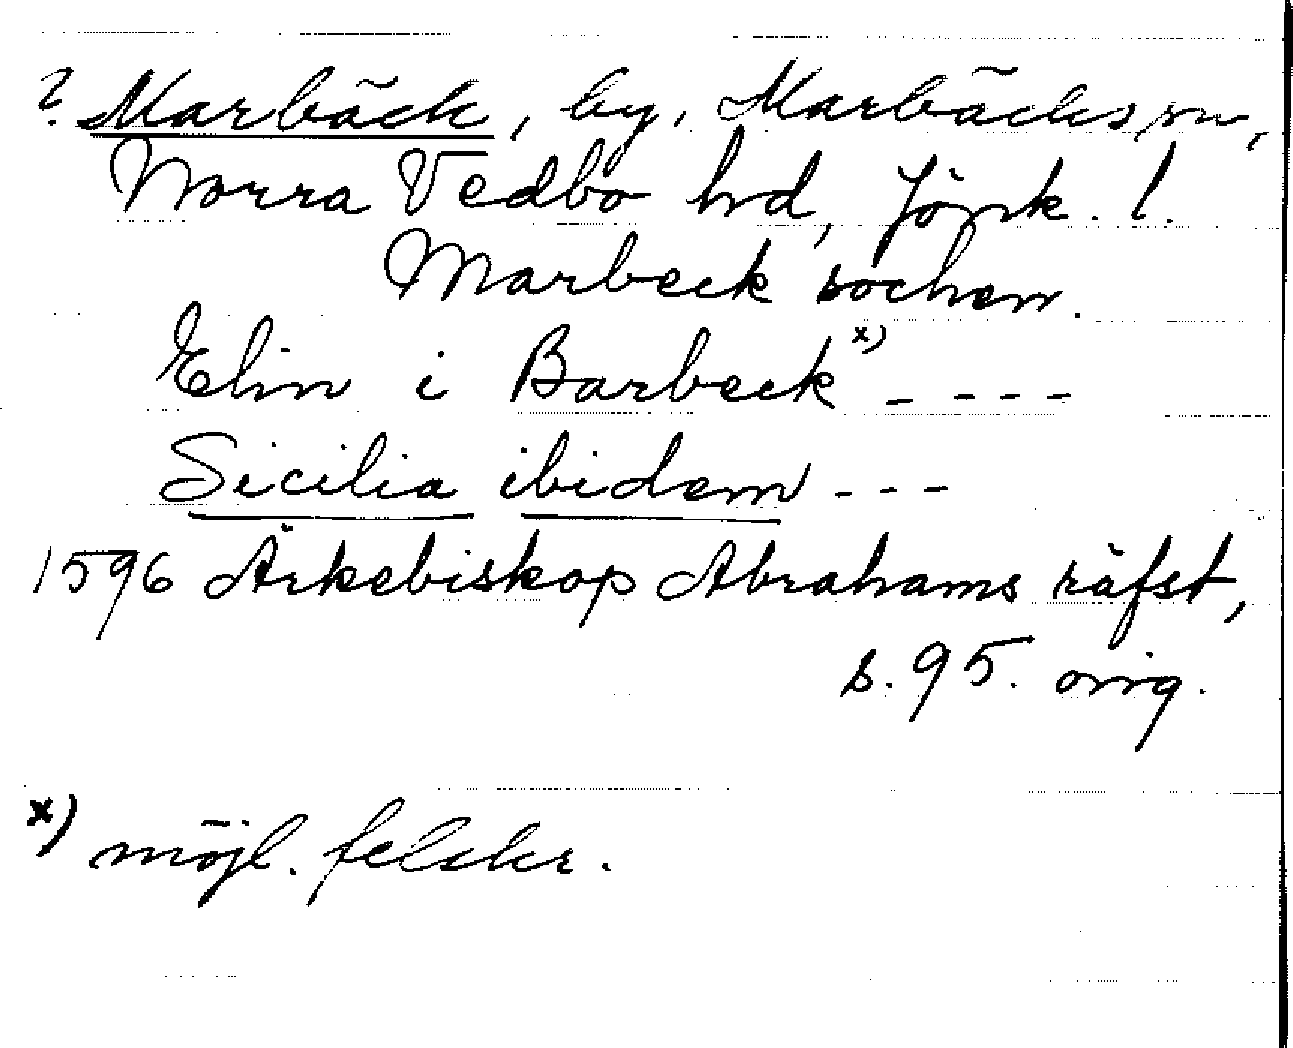 ? Marbäck, by, Marbäcks sn,
Norra Vedbo hrd, Jönk. l.
Marbeck sochen.
Elin i Barbeck x) _ _ _ _
Sicilia ibidem - - -
1596 Ärkebiskop Abrahams räfst,
s. 95. orig.
x) möjl. felskr.